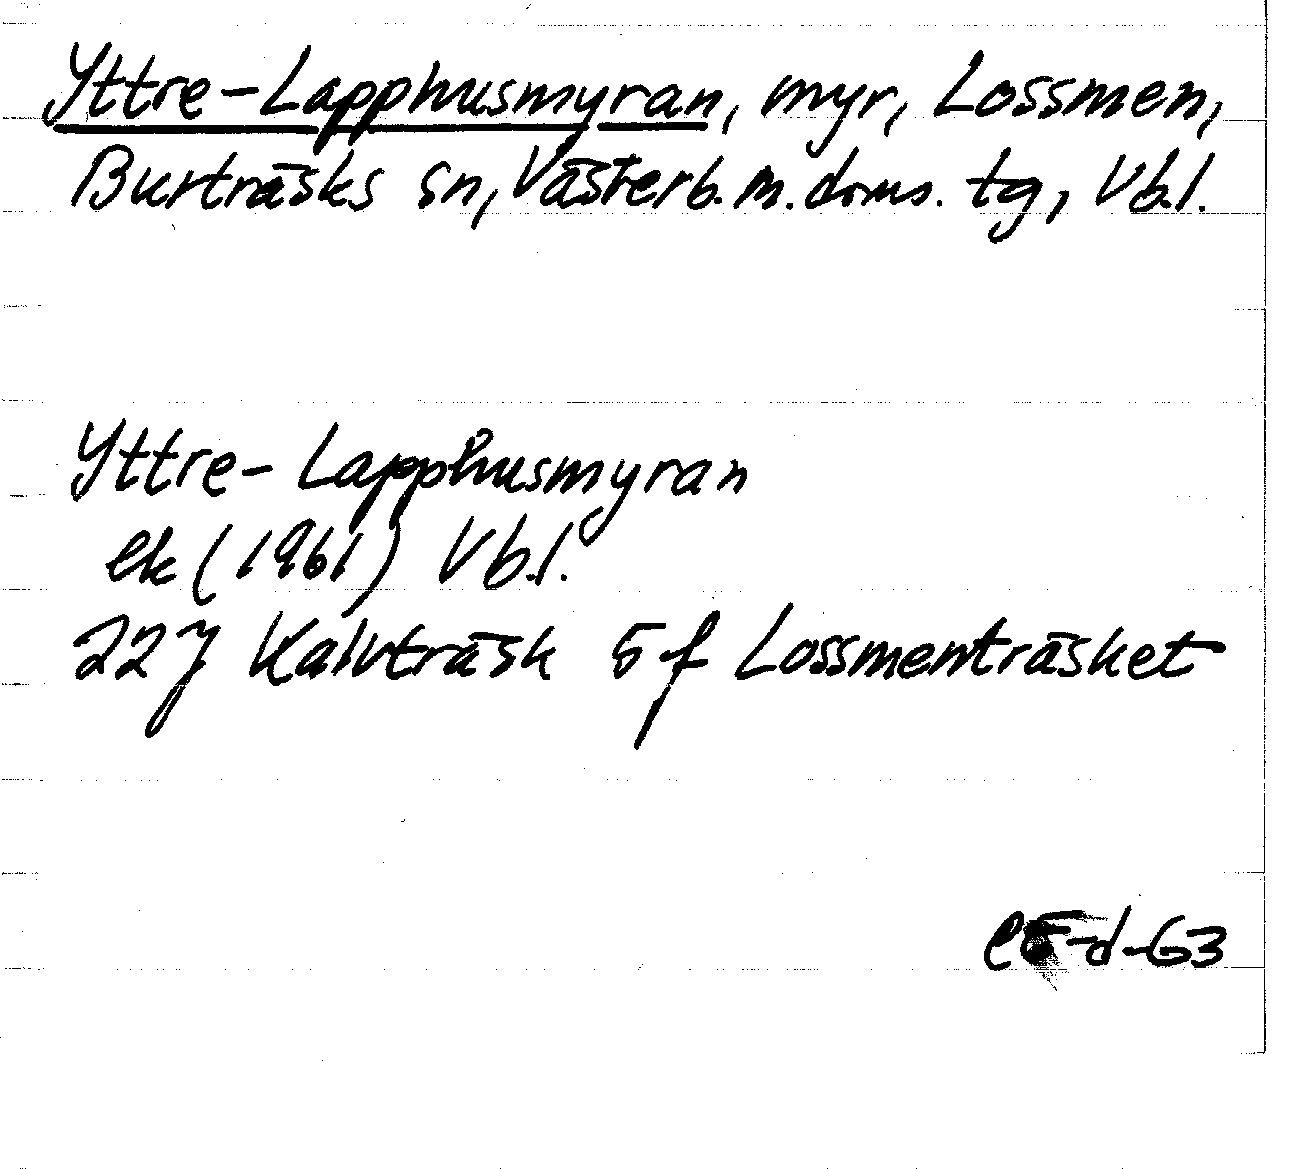 Yttre-Lapphusmyran, myr, Lossmen,
Burträsks sn, Västerb. m. doms. tg, Vb.l.
Yttre-Lapphusmyran
ek (1961) Vb.l.
22J Kalvträsk 5f Lossmenträsket
-d-63